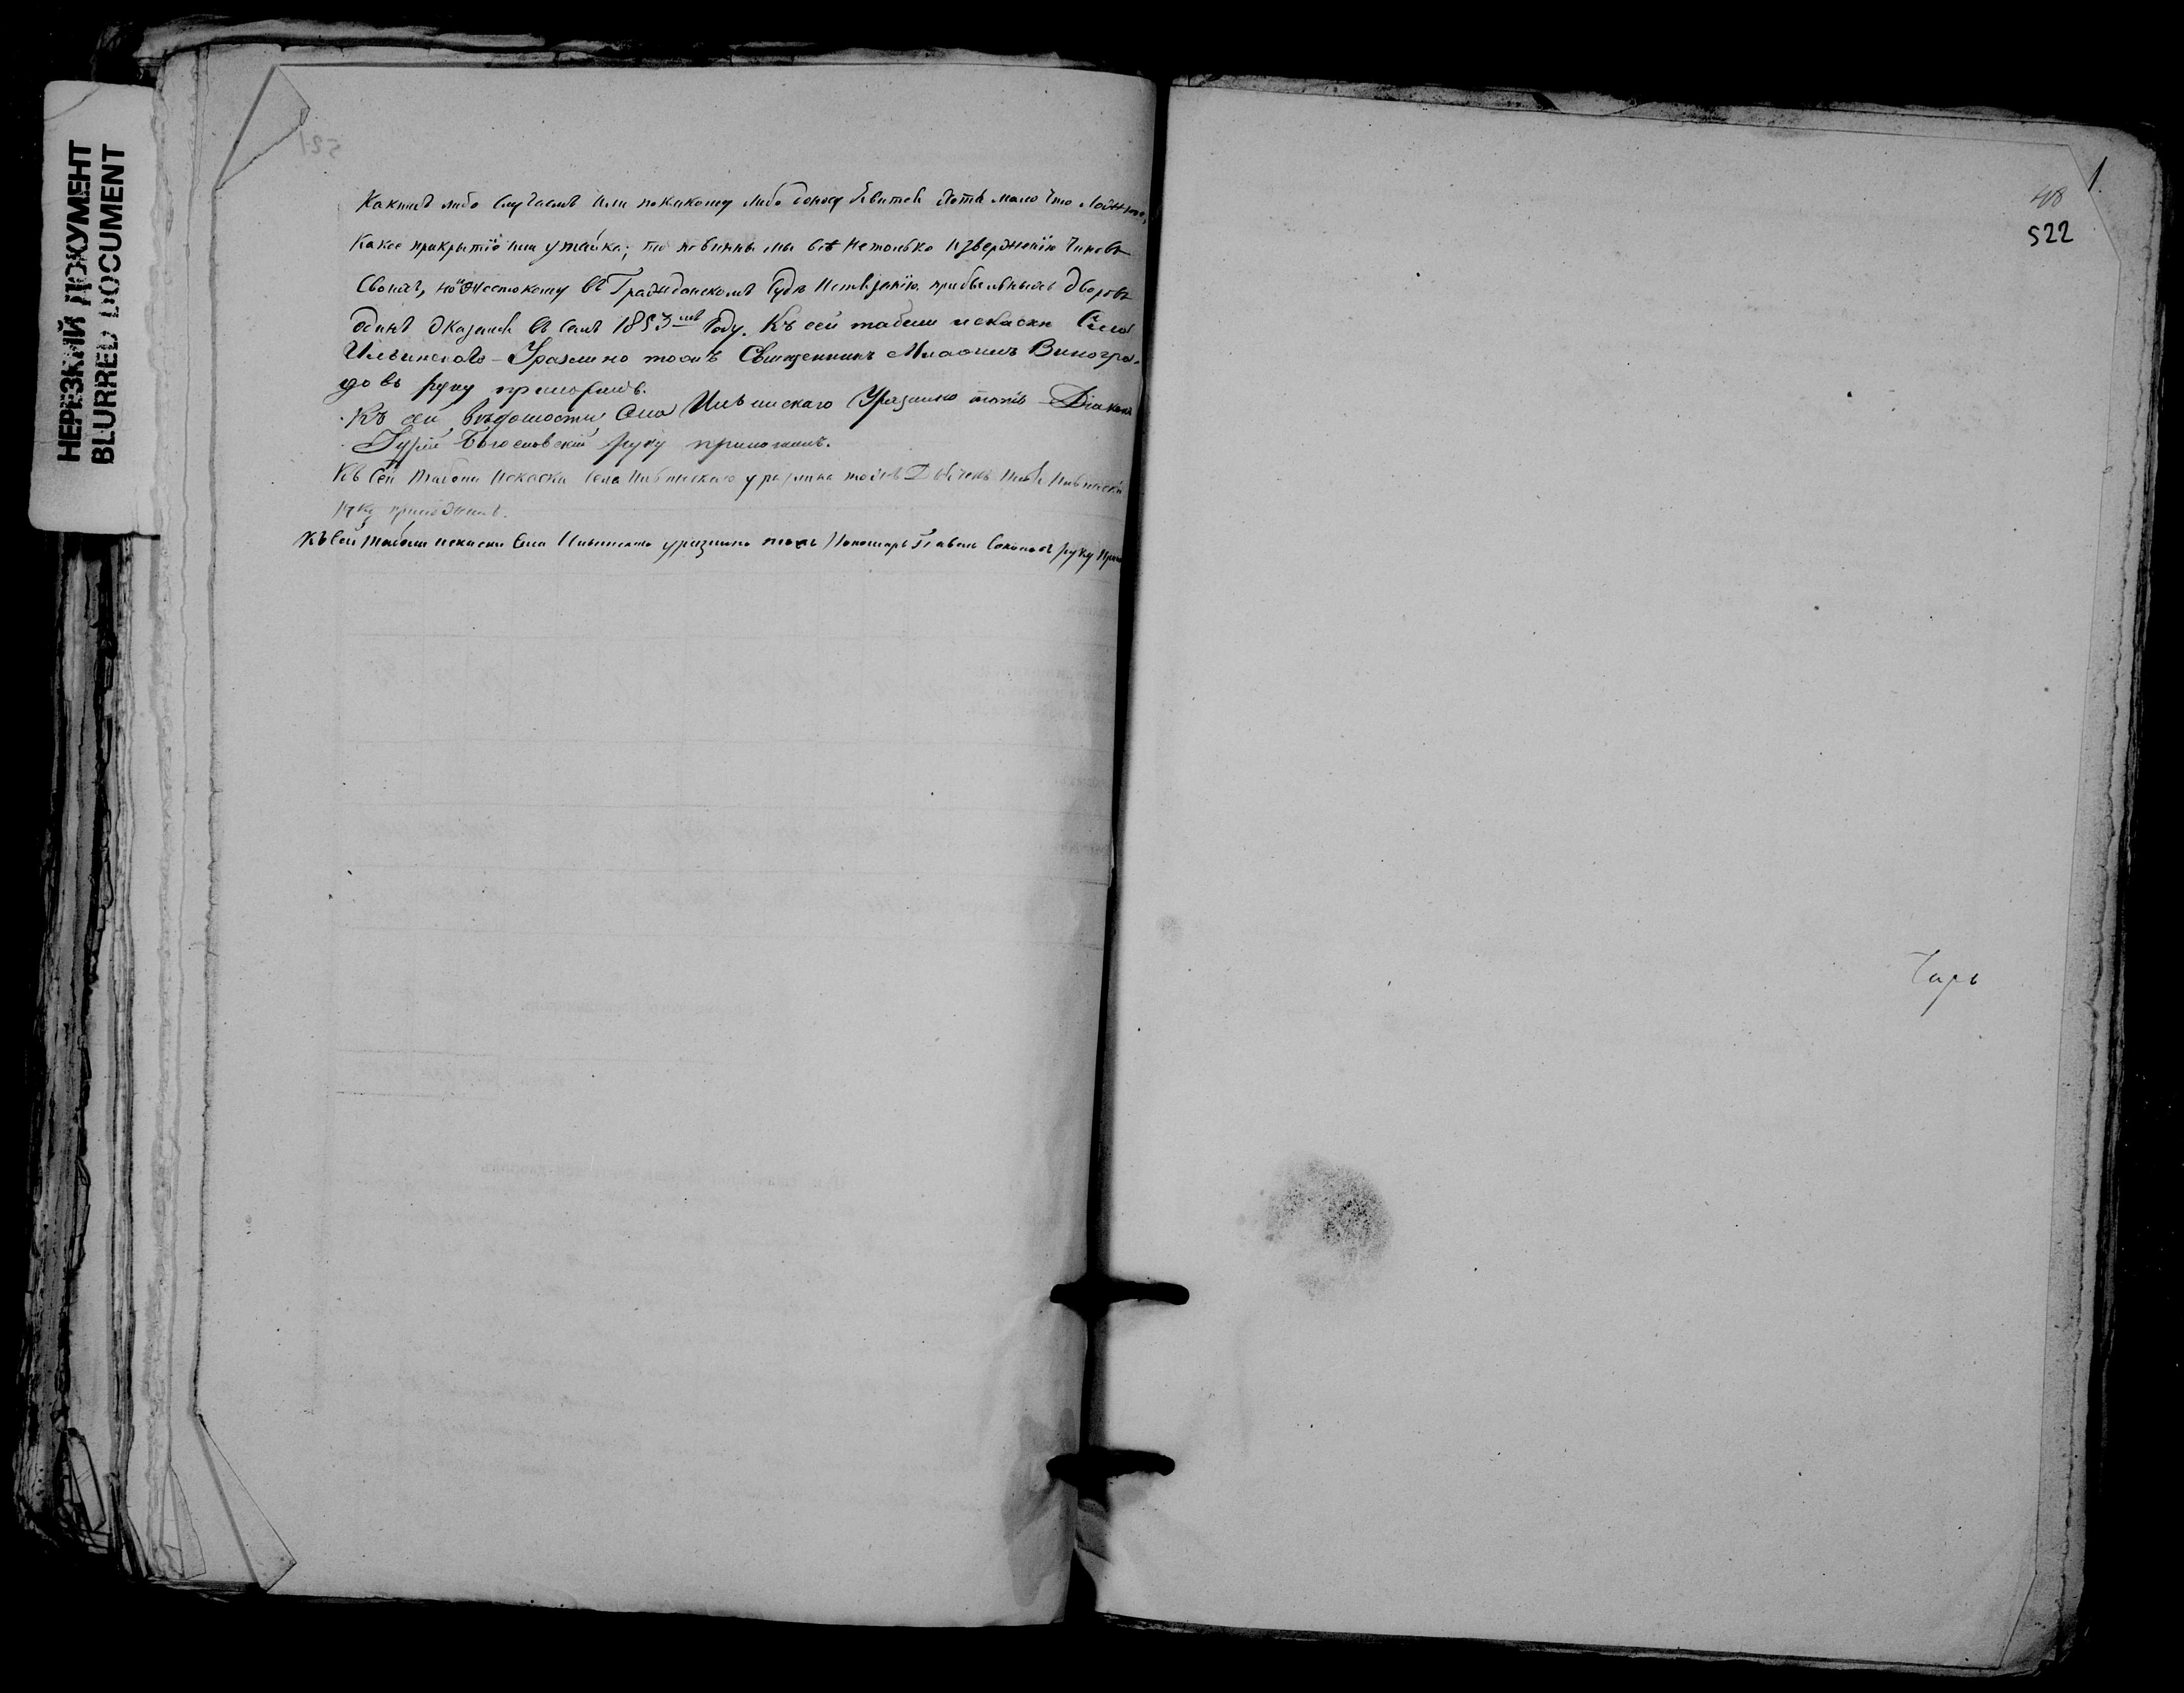 НЕРЕЗКИЙ ДОКУМЕНТ
BLURRED DOCUMENT
521
Какимъ либо случаемъ или покакому либо доносу явится хотя мало что ложное,
какое прикрытіе или утайка; то повинны мы всѣ нетолько изверженію чиновъ
своихъ, но и жестокому въ Гражданскомъ Судѣ истязанію. прибыльныхъ дворовъ
одинъ оказался въ семъ 1853мъ году. Къ сей табели искаски Села
Ильинскаго-Уразлино тожъ Священникъ Виногра-
довъ руку приложилъ.
Къ сей вѣдомости Села Ильинскаго Уразлино тожъ Діаконъ
Гурій Богословскій руку приложилъ.
Къ сей табели искаски села Ильинскаго уразлина тожъ Дьячекъ
руку приложилъ.
Къ сей табели искаски села Ильинскаго уразлина тожъ Пономарь Павелъ Соколовъ руку
1
48
522